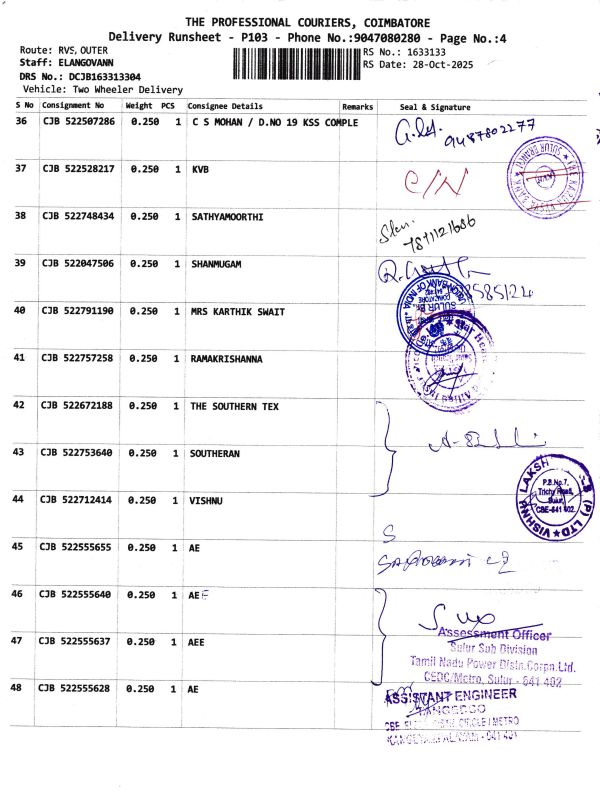 THE PROFESSIONAL COURIERS, COIMBATORE
Delivery Runsheet - P103 - Phone No.:9047080280 - Page No.:4
Route: RVS, OUTER
RS No.: 1633133
Staff: ELANGOVANN
RS Date: 28-Oct-2025
DRS No.: DCJB163313304
Vehicle: Two Wheeler Delivery
S No Consignment No Weight PCS Consignee Details Remarks Seal & Signature
36 CJB 522507286 0.250 1 C S MOHAN / D.NO 19 KSS COMPLE
9487802277
37 CJB 522528217 0.250 1 KVB C/N
38 CJB 522748434 0.250 1 SATHYAMOORTHI
39 CJB 522047506 0.250 1 SHANMUGAM
40 CJB 522791190 0.250 1 MRS KARTHIK SWAIT
41 CJB 522757258 0.250 1 RAMAKRISHANNA
42 CJB 522672188 0.250 1 THE SOUTHERN TEX
43 CJB 522753640 0.250 1 SOUTHERAN
P.B.No.7,
Trichy Road,
Sulur,
CBE-641 402.
44 CJB 522712414 0.250 1 VISHNU
45 CJB 522555655 0.250 1 AE
46 CJB 522555640 0.250 1 AEE
Assessment Officer
Sulur Sub Division
47 CJB 522555637 0.250 1 AEE
Tamil Nadu Power Distn.Corpn.Ltd.
CEDC/Metro, Sulur - 641 402
48 CJB 522555628 0.250 1 AE
ASSISTANT ENGINEER
TANGEDCO